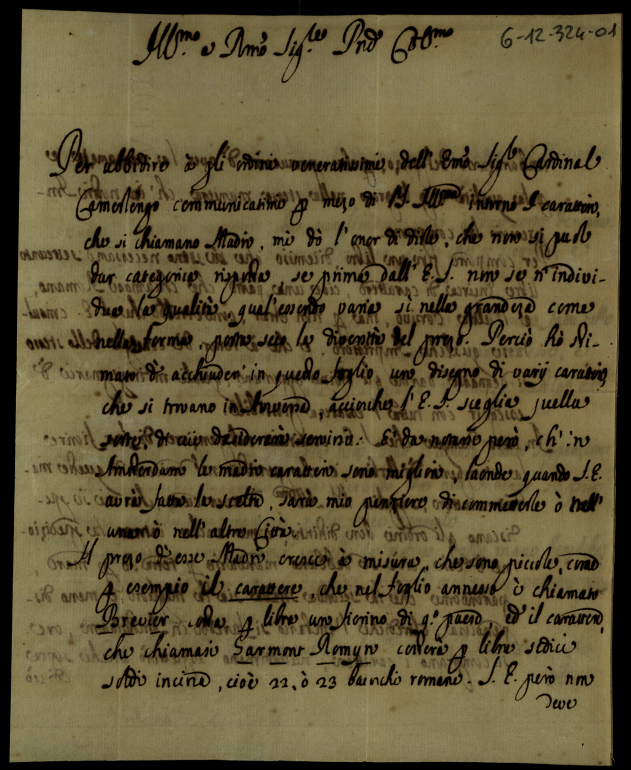 6-12-324-01
Ill.mo e Rmo Sig.re Prõe Col.mo
Per ubbidire à gli ordini veneratissimi dell' Emo Sig.r Cardinal
Camerlengo communicatimi p mezo di V.S. Ill.ma intorno I caratteri,
che si chiamano Madri, mi dò l'onor di dirle, che non si può
dar categorica risposta se prima dall' E.S. non se n'indivi-
dua la qualità, qual'essendo varia sì nella grandeza come
nella forma, porta seco la diversità del prezo. Perciò hò sti-
mato d'acchiuder' in questo foglio un disegno di varij caratteri,
che si trovano in Anversa, acciochè l'E.S. sceglia quella
sorte, di cui desidererà servirsi. È da notarsi però, ch'in
Amsterdam le madri caratteri sono migliori, laonde quando S.E.
avrà fatta la scelta, saria mio pensiere di commetterle ò nell'
una ò nell'altra Città.
Il prezo d'esse Madri cresce à misura, che sono piccole, come
p esempio il carattere, che nel foglio annesso è chiamato
Brevier costa p libra un fiorino di q.o paese, ed il carattere,
che chiamasi Garmont Romyn costerà p libra sedici
soldi incirca, cioè 22. ò 23 baiochi romani. S.E. però non
deve